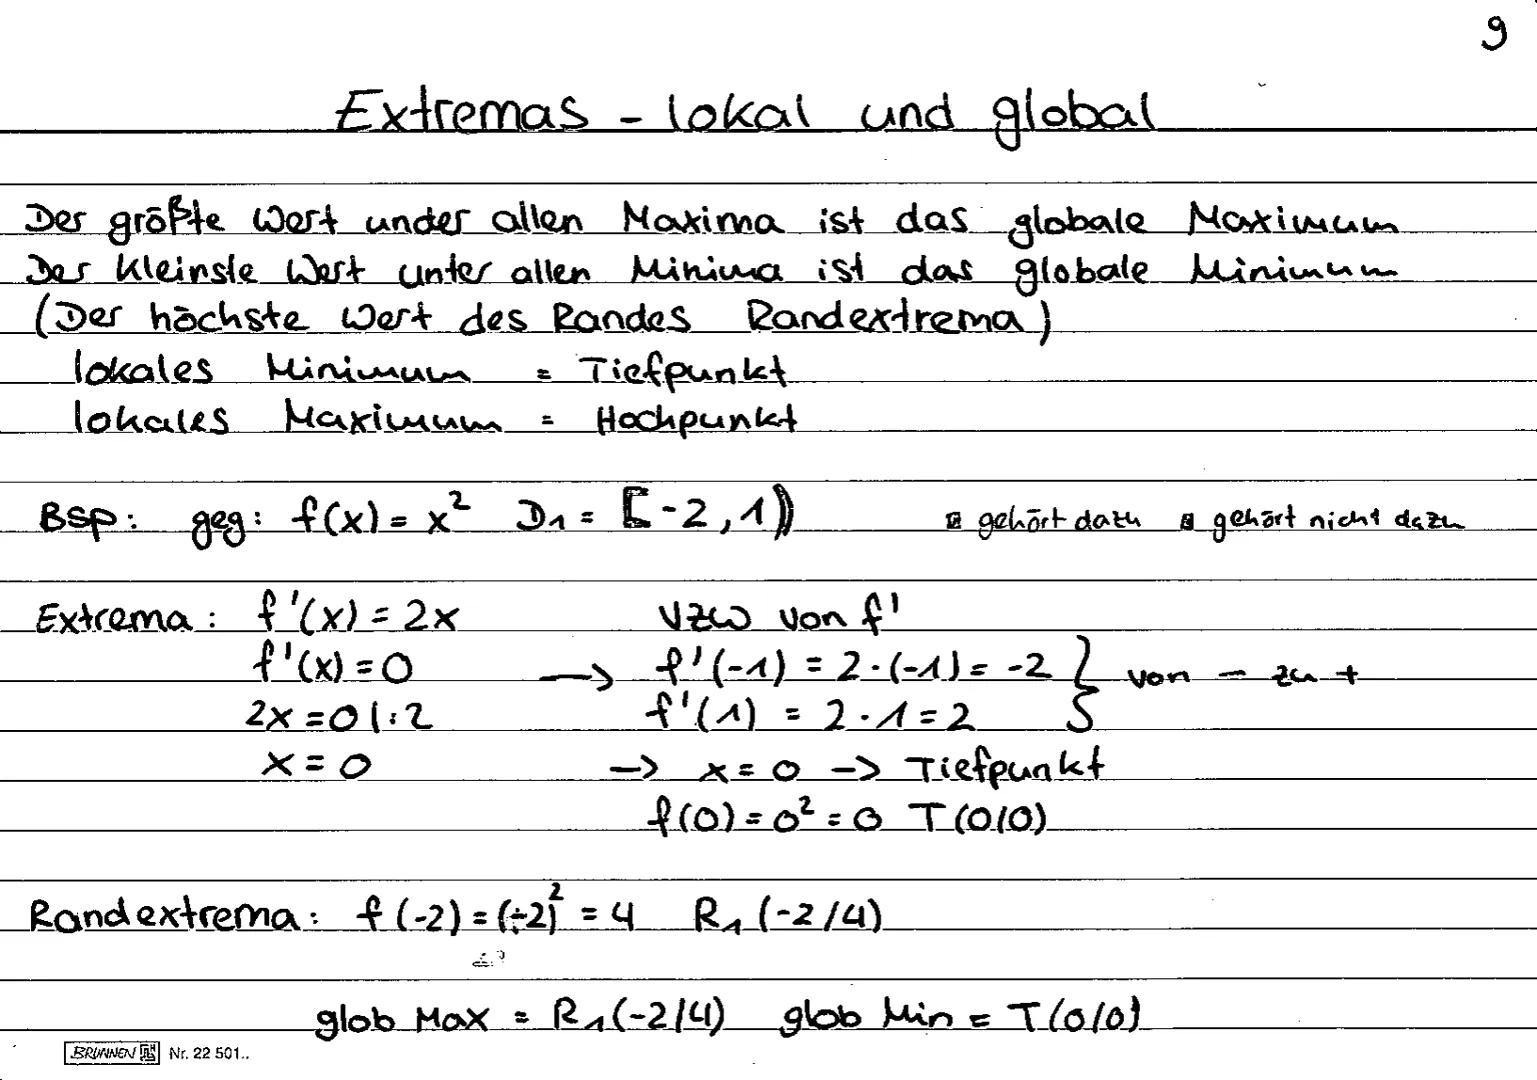 9
Extremas - lokal und global
Der größte Wert under allen Maxima ist das globale Maximum
Der kleinste Wert unter allen Minima ist das globale Minimum
(Der höchste Wert des Randes Randextrema)
lokales Minimum = Tiefpunkt
lokales Maximum = Hochpunkt
Bsp: geg: f(x) = x² D₁ = [-2,1) gehört dazu gehört nicht dazu
Extrema: f'(x) = 2x VZW von f'
f'(x) = 0 → f'(-1) = 2·(-1) = -2 } von - zu +
2x = 0 |:2 f'(1) = 2·1 = 2
x = 0 → x = 0 → Tiefpunkt
f(0) = 0² = 0 T(0/0)
Randextrema: f(-2) = (-2)² = 4 R₁(-2/4)
glob Max = R₁(-2/4) glob Min = T(0/0)
BRUNNEN Nr. 22 501..